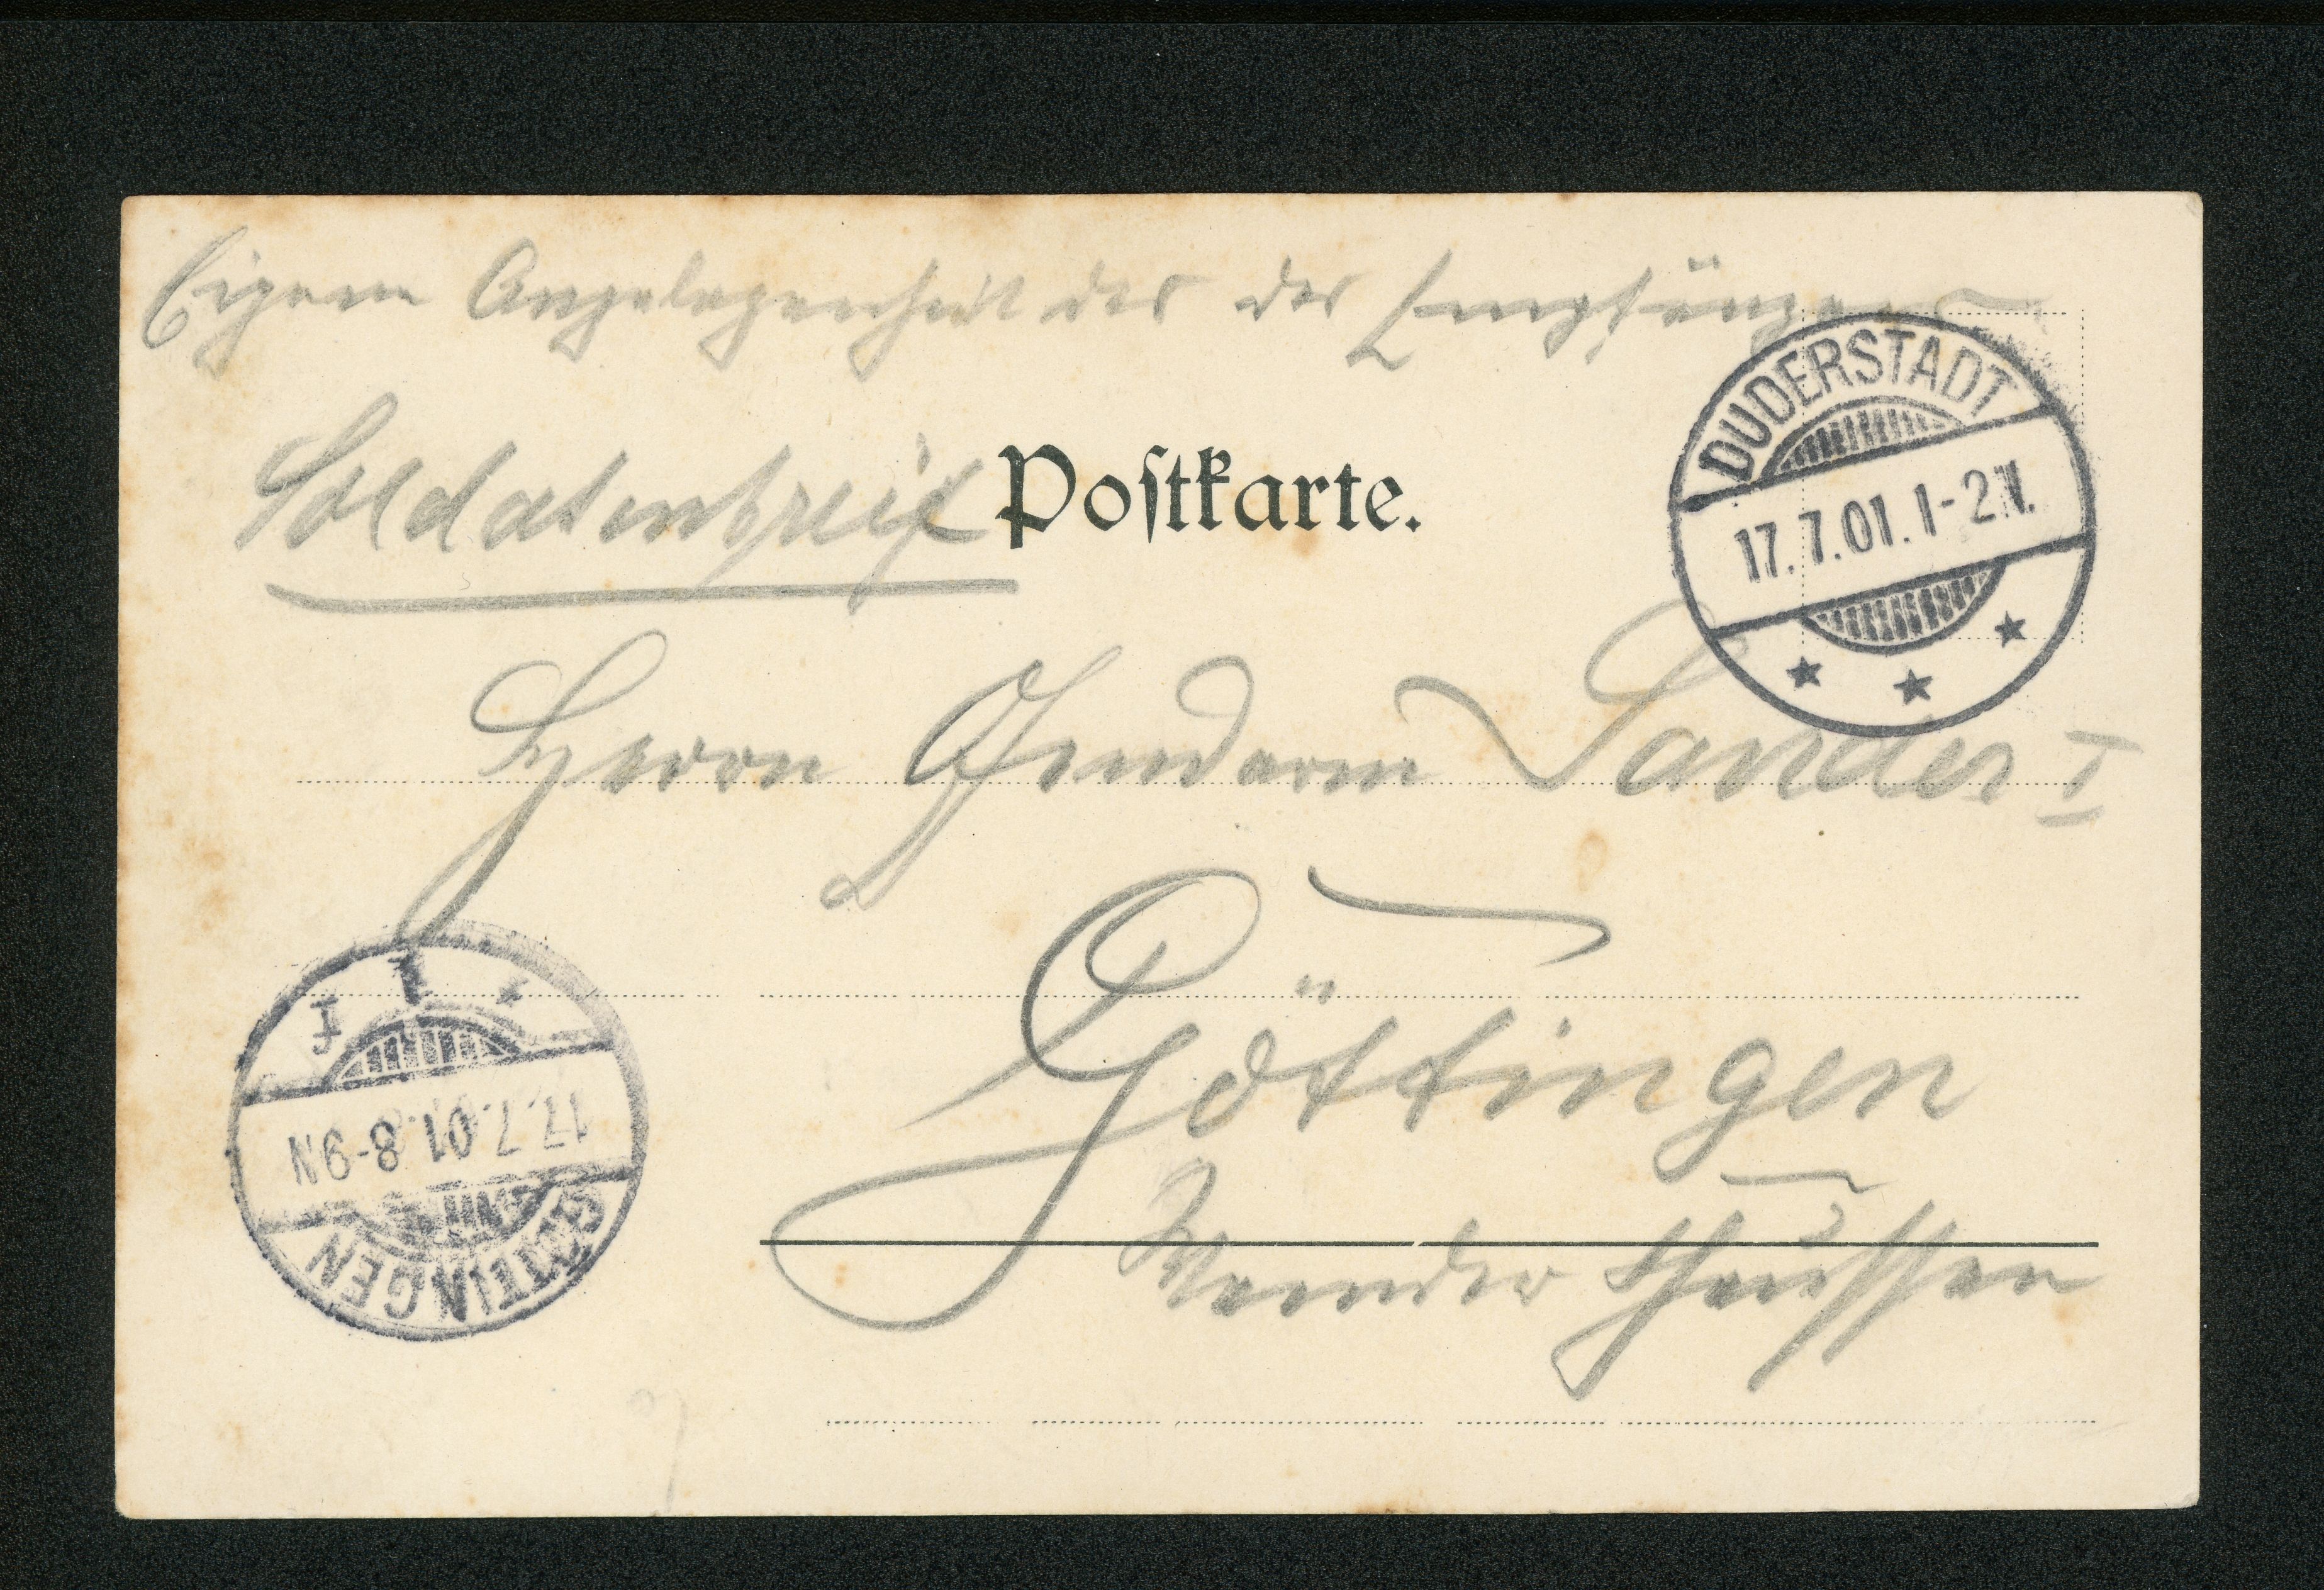 Eigene Angelegenheit des des Empfängers
DUDERSTADT
17.7.01.1-2N.
Soldatenbrief
Postkarte.
Herrn Gendarm Sander I
Göttingen
Weender Chaussee
GÖTTINGEN
17.7.01.8-9N